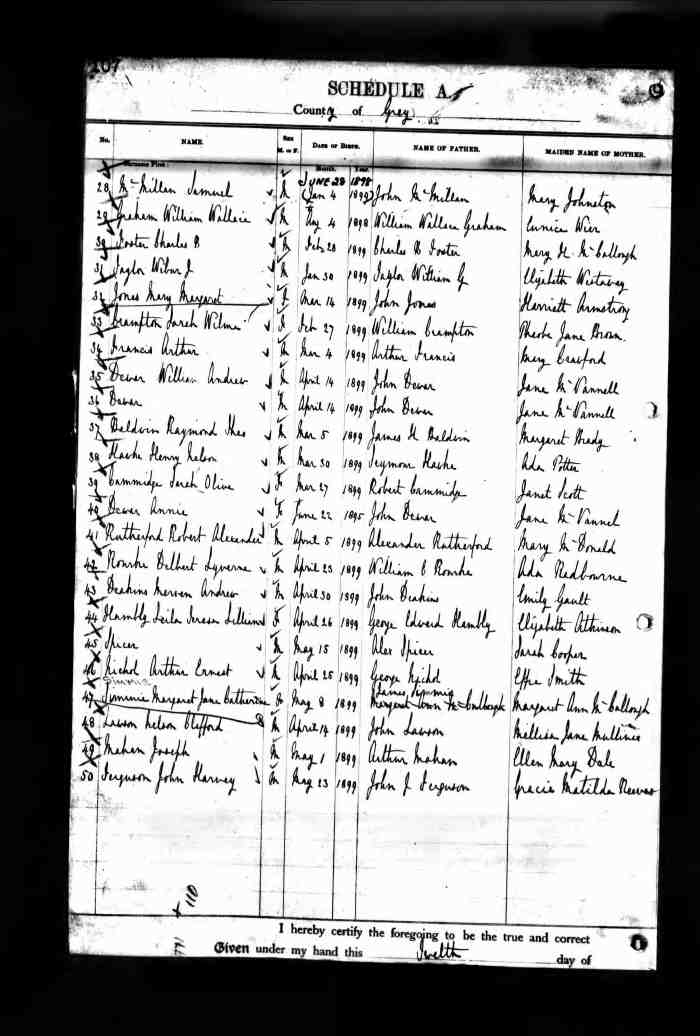 207
SCHEDULE A
County of Grey
No. NAME. Sex M. or F. DATE OF BIRTH. NAME OF FATHER. MAIDEN NAME OF MOTHER.
Surname First. Month. Year.
JUNE 28 1898
28 McMillan Samuel M Jan 4 1899 John McMillan Mary Johnston
29 Graham William Wallace M Aug 4 1898 William Wallace Graham Eunice Weir
30 Foster Charles B M Feb 28 1899 Charles B Foster Mary H McCullough
31 Taylor Wilbur J M Jan 30 1899 Taylor William G Elizabeth Westaway
32 Jones Mary Margaret F Mar 14 1899 John Jones Harriett Armstrong
33 Crampton Sarah Wilma F Feb 27 1899 William Crampton Phoebe Jane Brown
34 Francis Arthur M Mar 4 1899 Arthur Francis Mary Crawford
35 Dewar William Andrew M April 14 1899 John Dewar Jane McVannell
36 Dewar M April 14 1899 John Dewar Jane McVannell
37 Baldwin Raymond Thos M Mar 5 1899 James H Baldwin Margaret Brady
38 Hawke Henry Nelson M Mar 30 1899 Seymour Hawke Ada Potter
39 Cammidge Sarah Olive F Mar 27 1899 Robert Cammidge Janet Scott
40 Dewar Annie F June 22 1895 John Dewar Jane McVannel
41 Rutherford Robert Alexander M April 5 1899 Alexander Rutherford Mary McDonald
42 Rourke Delbert Lyverne M April 23 1899 William C Rourke Ada Redbourne
43 Deakins Merven Andrew M April 30 1899 John Deakins Emily Gault
44 Hambly Leila Teresa Lillian F April 26 1899 George Edward Hambly Elizabeth Atkinson
45 Spicer M May 15 1899 Alex Spicer Sarah Cooper
46 Nichol Arthur Ernest M April 25 1899 George Nichol Effie Smith
James
47 Margaret Jane Catherine F May 8 1899 Margaret Ann McCullough Margaret Ann McCullough
48 Lawson Nelson Clifford M April 14 1899 John Lawson Millian Jane Mullins
49 Mahan Joseph M May 1 1899 Arthur Mahan Ellen Mary Dale
50 Ferguson John Harvey M May 23 1899 John J Ferguson Gracia Matilda Reeves
I hereby certify the foregoing to be the true and correct
Given under my hand this Twelth day of